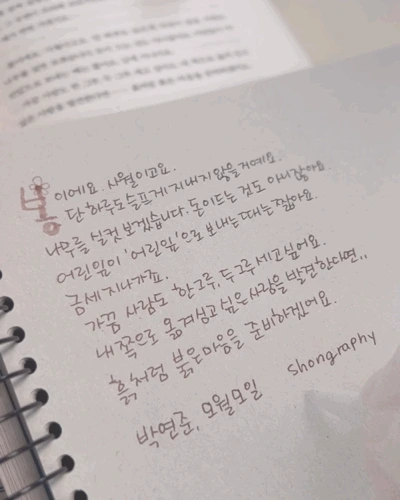 봄이에요. 사월이고요.
단 하루도 슬프게 지내지 않을 거예요.
나무를 실컷 보겠습니다. 돈이 드는 것도 아니잖아요.
어린잎이 '어린잎'으로 보내는 때는 짧아요.
금세 지나가죠.
가끔 사람도 한 그루, 두 그루 세고 싶어요.
내 쪽으로 옮겨 심고 싶은 사람을 발견한다면,,
흙처럼 붉은 마음을 준비하겠어요.
박연준, 모월모일
Shongraphy